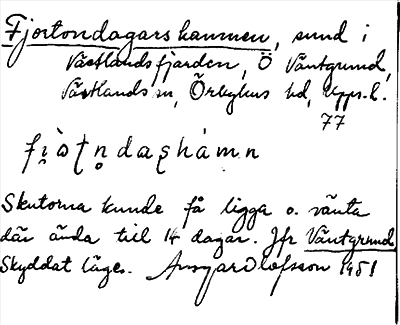 Fjortondagarshamnen, sund i
Västlandsfjärden, Ö Väntgrund,
Västlands sn, Örbyhus hd, Upps.l.
77
fi̯òʈn̥daʂhàmn
Skutorna kunde få ligga o. vänta
där ända till 14 dagar. Jfr Väntgrund
Skyddat läge. Ansgar Olofsson 1951